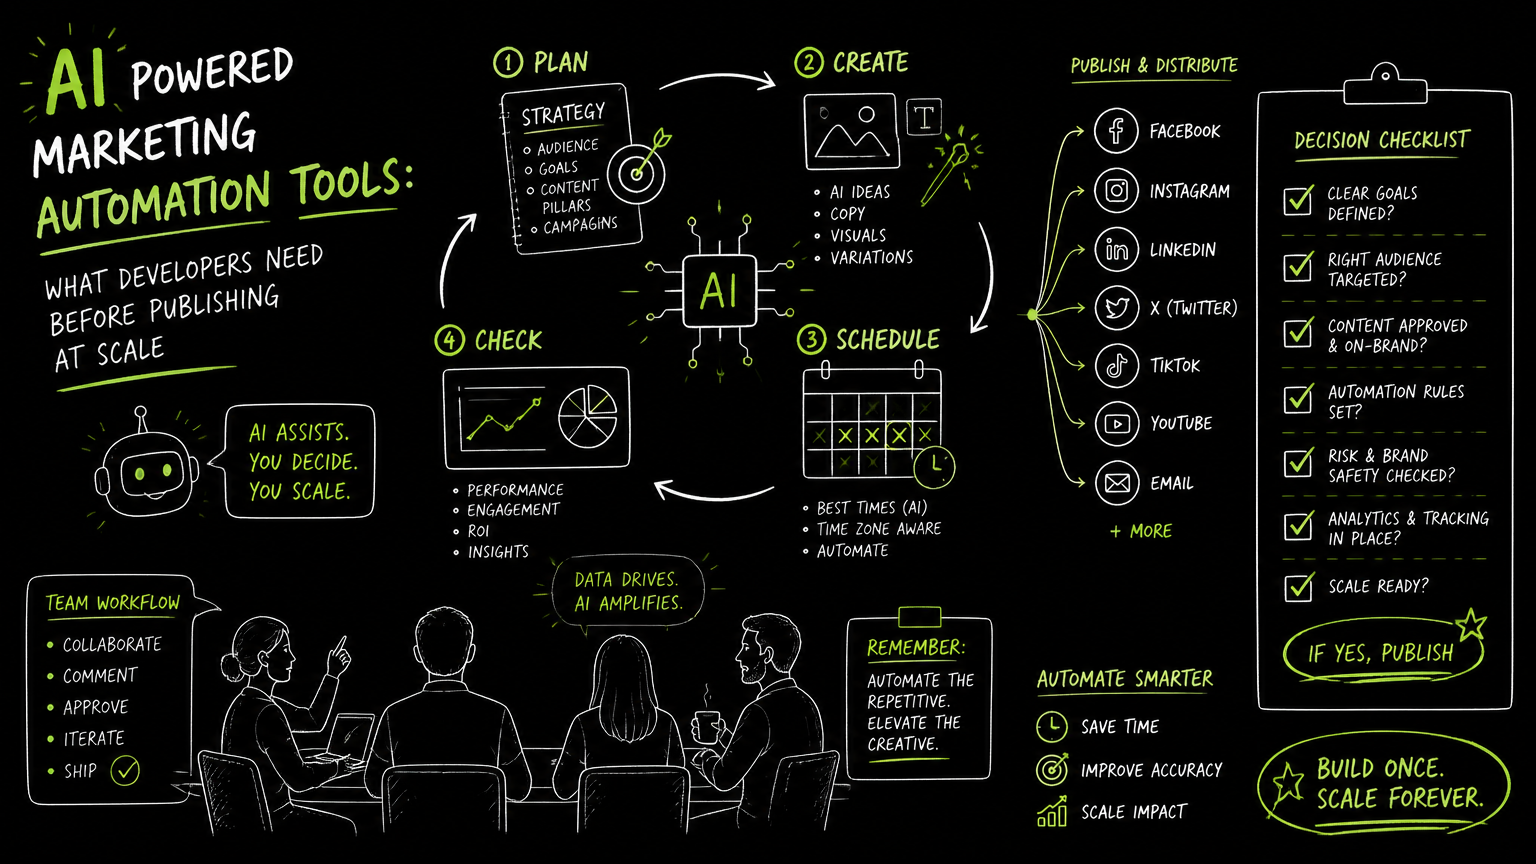 AI POWERED
MARKETING
AUTOMATION TOOLS:
WHAT DEVELOPERS NEED
BEFORE PUBLISHING
AT SCALE
AI ASSISTS.
YOU DECIDE.
YOU SCALE.
1 PLAN
STRATEGY
AUDIENCE
GOALS
CONTENT
PILLARS
CAMPAGINS
2 CREATE
T
AI IDEAS
COPY
VISUALS
VARIATIONS
AI
3 SCHEDULE
BEST TIMES (AI)
TIME ZONE AWARE
AUTOMATE
4 CHECK
PERFORMANCE
ENGAGEMENT
ROI
INSIGHTS
PUBLISH & DISTRIBUTE
FACEBOOK
INSTAGRAM
LINKEDIN
X (TWITTER)
TIKTOK
YOUTUBE
EMAIL
+ MORE
DECISION CHECKLIST
CLEAR GOALS
DEFINED?
RIGHT AUDIENCE
TARGETED?
CONTENT APPROVED
& ON-BRAND?
AUTOMATION RULES
SET?
RISK & BRAND
SAFETY CHECKED?
ANALYTICS & TRACKING
IN PLACE?
SCALE READY?
IF YES, PUBLISH
TEAM WORKFLOW
COLLABORATE
COMMENT
APPROVE
ITERATE
SHIP
DATA DRIVES.
AI AMPLIFIES.
REMEMBER:
AUTOMATE THE
REPETITIVE.
ELEVATE THE
CREATIVE.
AUTOMATE SMARTER
SAVE TIME
IMPROVE ACCURACY
SCALE IMPACT
BUILD ONCE.
SCALE FOREVER.